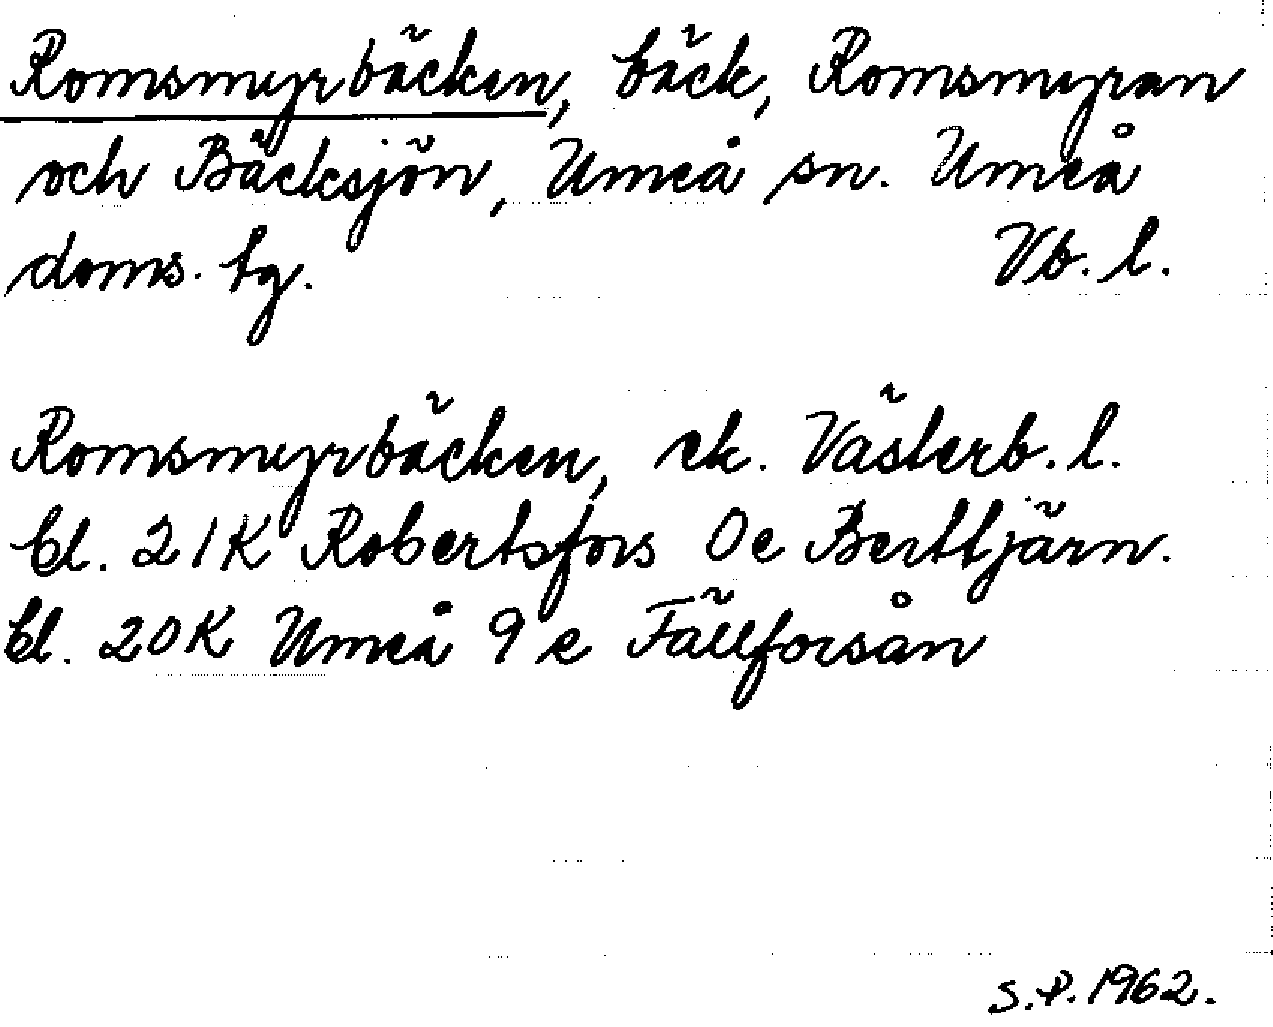 Romsmyrbäcken, bäck, Romsmyran
och Bäcksjön, Umeå sn. Umeå
doms. tg. Vb. l.
Romsmyrbäcken, ek. Västerb. l.
bl. 21K Robertsfors 0e Berttjärn.
bl. 20K Umeå 9e Fällforsån
S.P. 1962.